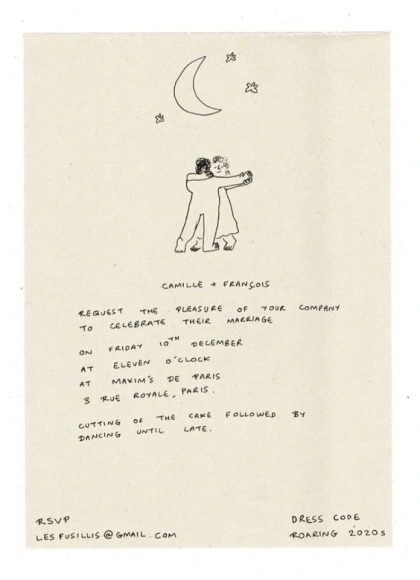 CAMILLE + FRANÇOIS
REQUEST THE PLEASURE OF YOUR COMPANY
TO CELEBRATE THEIR MARRIAGE
ON FRIDAY 10TH DECEMBER
AT ELEVEN O'CLOCK
AT MAXIM'S DE PARIS
3 RUE ROYALE, PARIS.
CUTTING OF THE CAKE FOLLOWED BY
DANCING UNTIL LATE.
RSVP
LESFUSILLIS@GMAIL.COM
DRESS CODE
ROARING 2020s